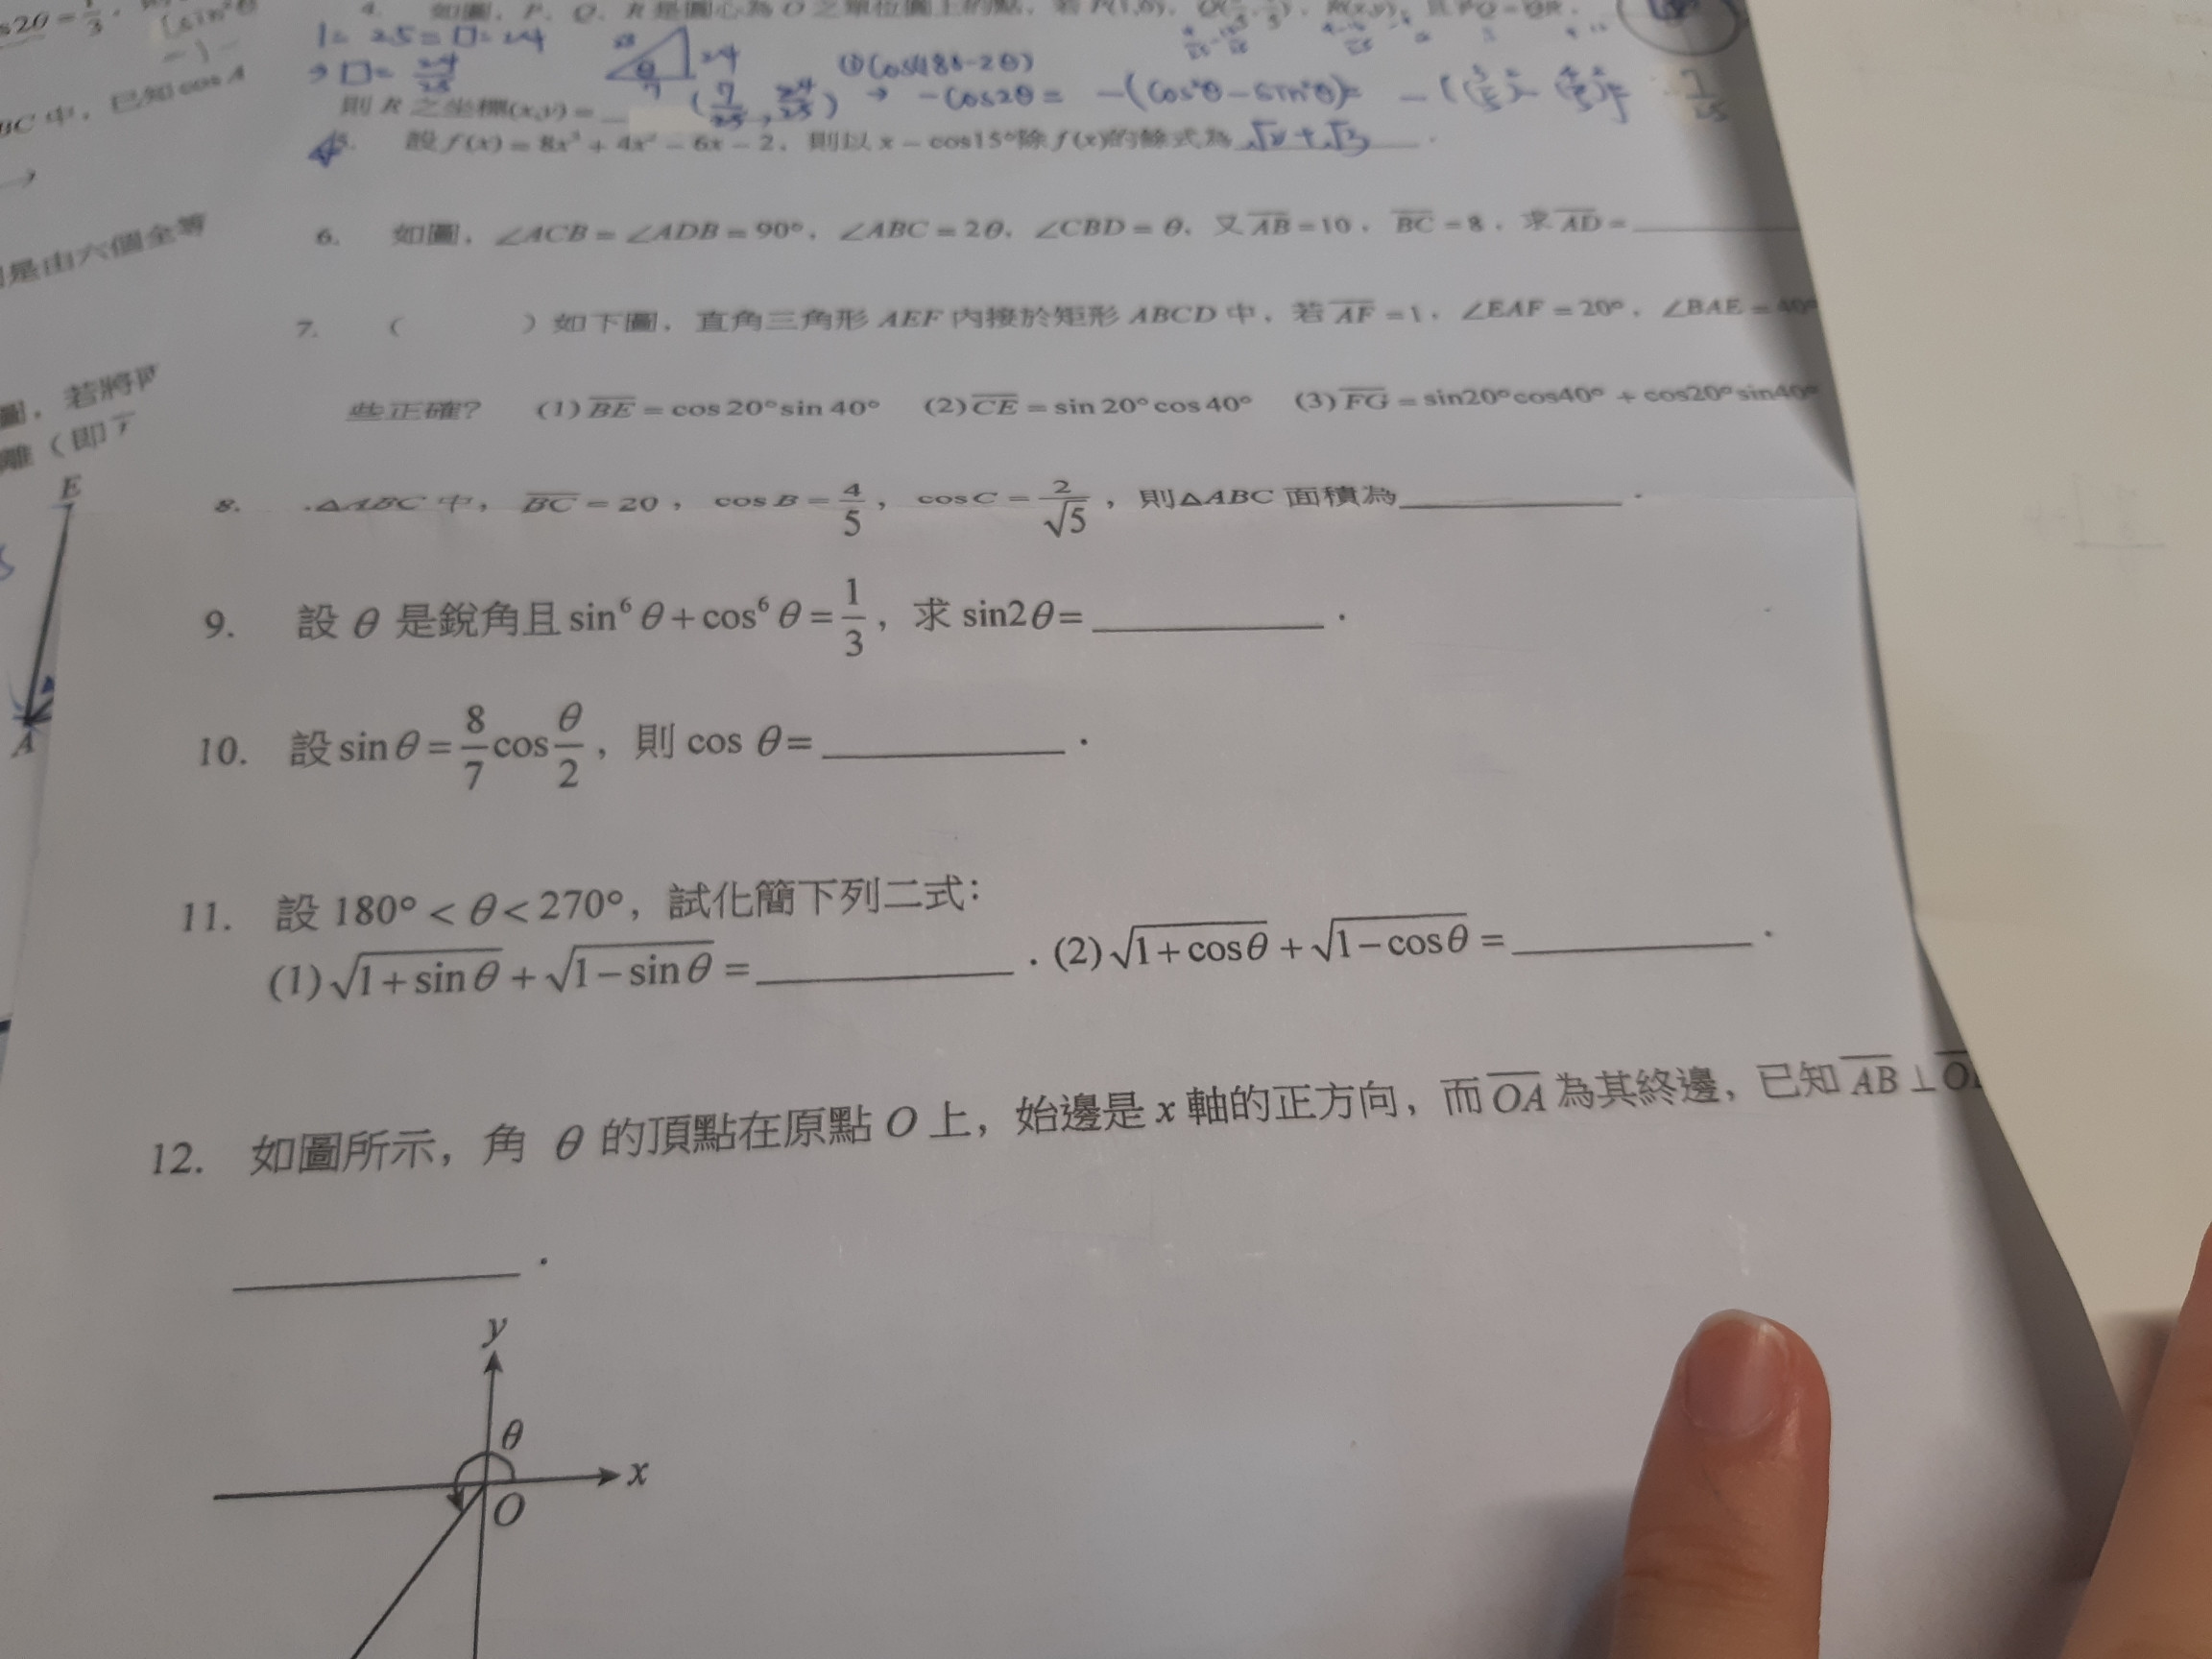 4. 如圖，P、Q、R 是圓心為 O 之單位圓上的點，若 P(1,0)，
1= 25=□=24
⇒ □= 24/25
25 24 θ 7
(1) cos(180-2θ)
則 R 之坐標(x,y)=__ (7/25, 24/25) → -cos2θ = -(cos²θ-sin²θ)=
5. 設 f(x) = 8x³ + 4x² - 6x - 2，則以 x - cos15°除 f(x)的餘式為 √2+√3 .
6. 如圖，∠ACB = ∠ADB = 90°，∠ABC = 2θ，∠CBD = θ，又 AB=10，BC=8，求 AD=__________
7. ( ) 如下圖，直角三角形 AEF 內接於矩形 ABCD 中，若 AF =1，∠EAF = 20°，∠BAE = 40°
些正確？ (1) BE = cos 20°sin 40° (2) CE = sin 20°cos 40° (3) FG = sin20°cos40° + cos20°sin40°
8. .△ABC 中， BC = 20， cos B = 4/5， cos C = 2/√5，則△ABC 面積為__________.
9. 設 θ 是銳角且 sin⁶θ + cos⁶θ = 1/3，求 sin2θ=__________.
10. 設 sin θ = 8/7 cos θ/2，則 cos θ=__________.
11. 設 180° < θ < 270°，試化簡下列二式：
(1) √(1+sin θ) + √(1-sin θ) =__________. (2) √(1+cosθ) + √(1-cosθ) =__________.
12. 如圖所示，角 θ 的頂點在原點 O 上，始邊是 x 軸的正方向，而 OA 為其終邊，已知 AB ⊥
__________.
y
θ
x
O
BC 中，已知 cos A
→
是由六個全等
圖，若將
離（即
E
A